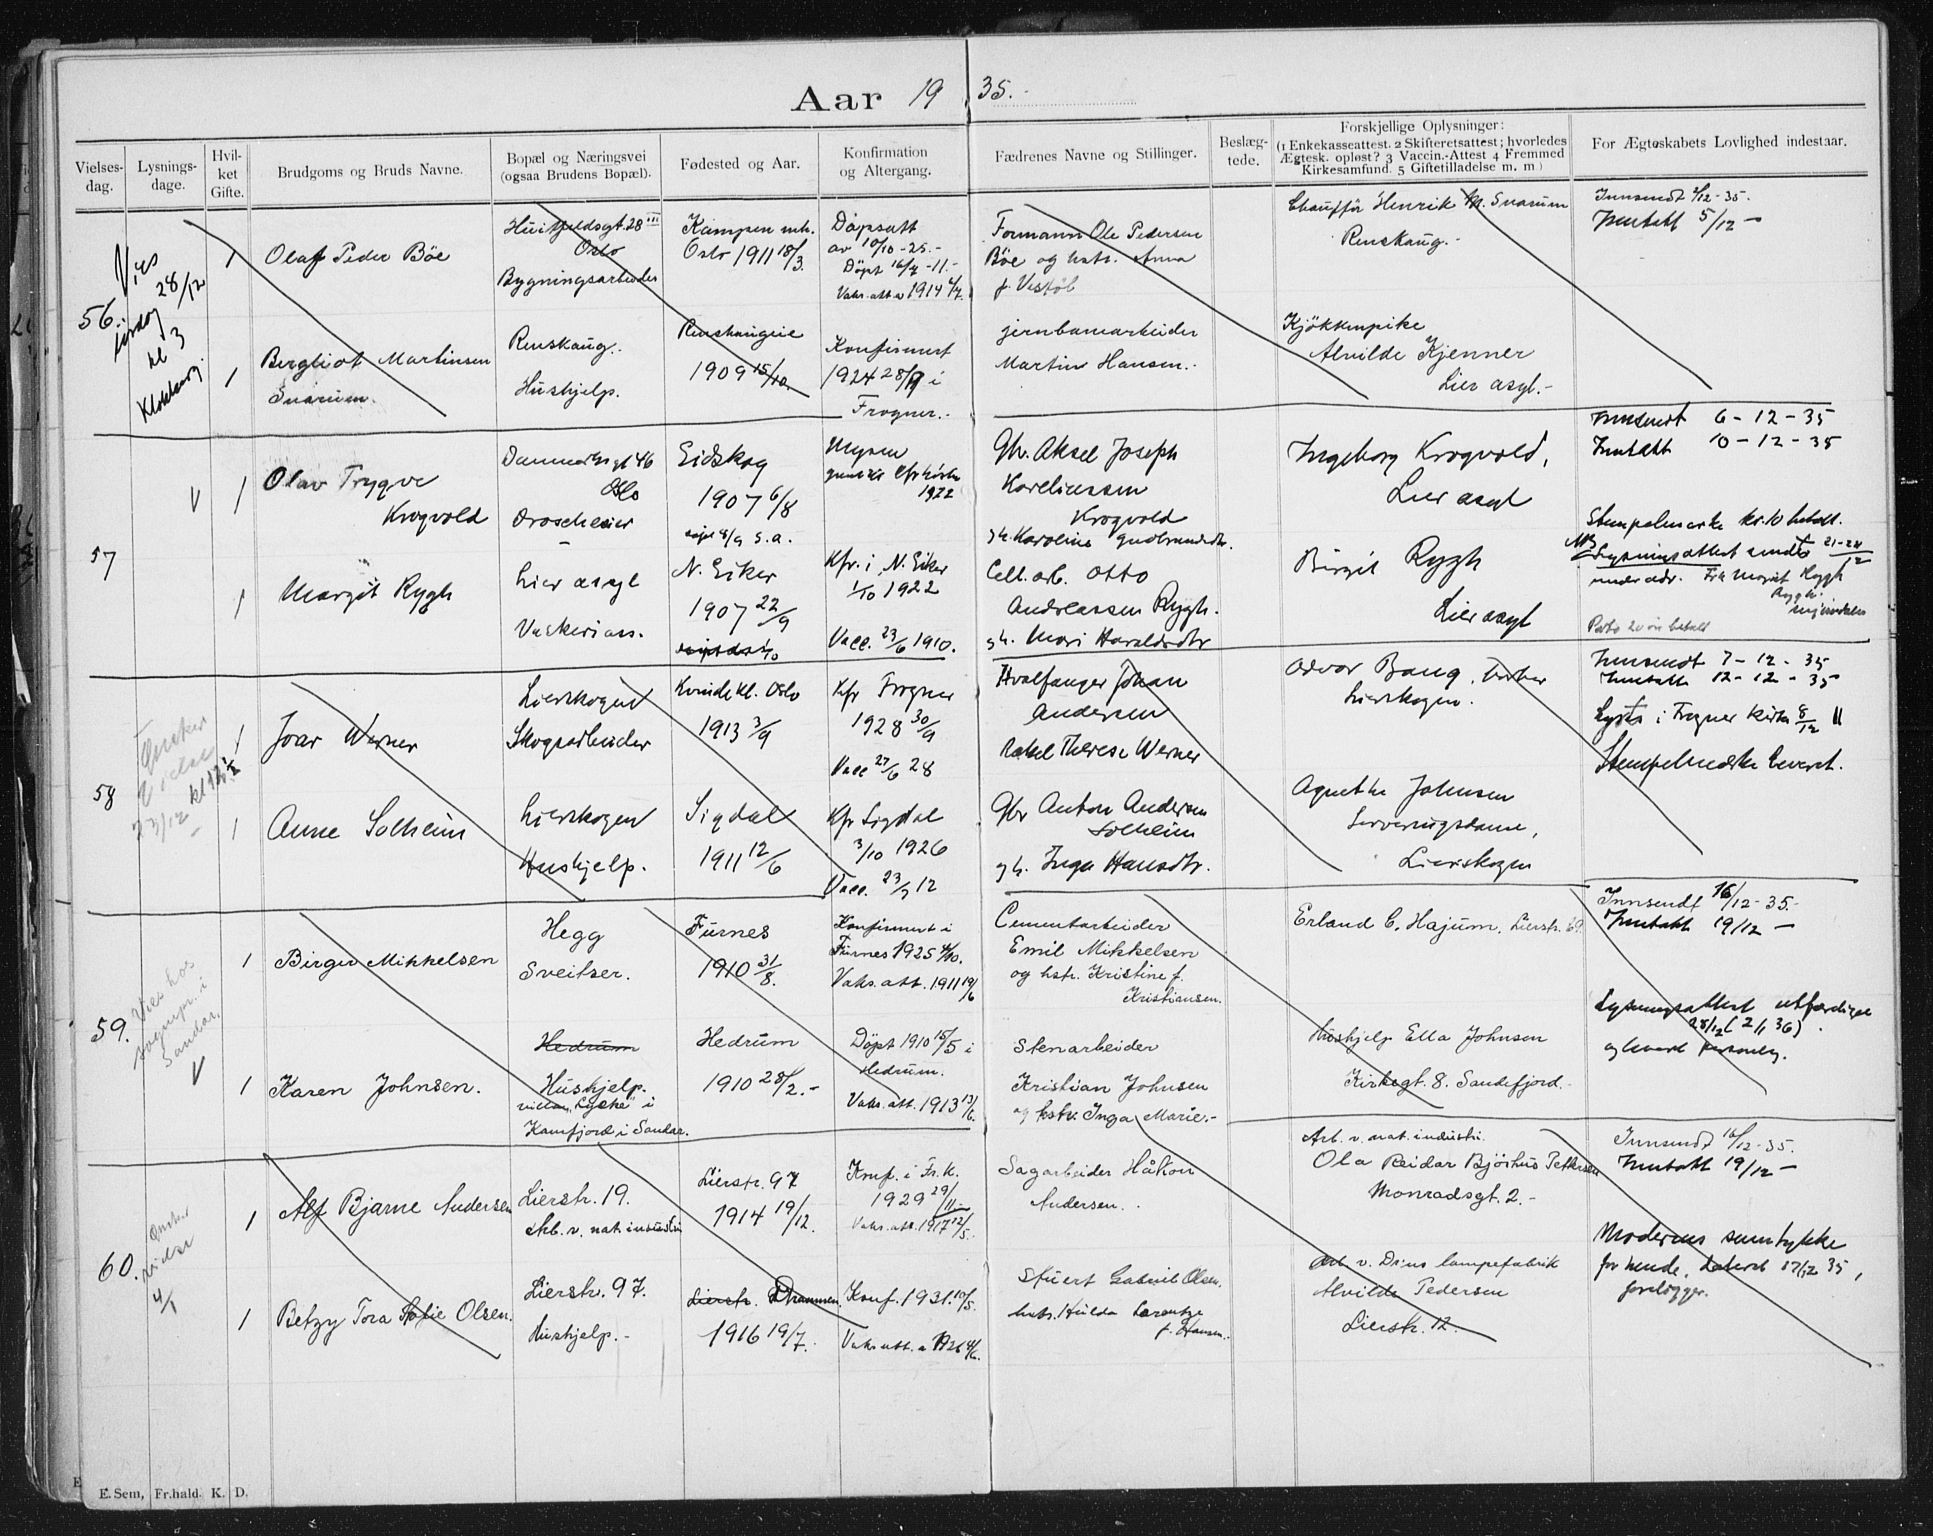 Aar 1935.
Vielses-
dag.
Lysnings-
dage.
Hvil-
ket
Gifte.
Brudgoms og Bruds Navne.
Bopæl og Næringsvei
(ogsaa Brudens Bopæl).
Fødested og Aar.
Konfirmation
og Altergang.
Fædrenes Navne og Stillinger.
Beslæg-
tede.
Forskjellige Oplysninger:
(1 Enkekasseattest. 2 Skifteretsattest; hvorledes
Ægtesk. opløst? 3 Vaccin.-Attest 4 Fremmed
Kirkesamfund. 5 Giftetilladelse m. m.)
For Ægteskabets Lovlighed indestaar.
56.
Vies
28/12
lørdag
kl 3
1
Olaf Peder Böe
Huitfeldsgt. 28 III
Oslo
Bygningsarbeider
Kampen mh.
Oslo 1911 18/3.
Döpsatt
av 10/10-25.-
Döpt 16/4-11.-
Vaks. att. 1914
Formann Ole Pedersen
Böe og hstr. Anna
f. Vestöl
Chaufför Henrik M. Snarum
Renskaug.-
Innsendt 2/12-35.
Inntatt 5/12 -
1
Bergliot Martinsen
Snarum.
Renskaug.
Hushjelp.
Renskaugeie
1909 15/10
Konfirmert
1924 28/9 i
Frogner.-
jernbanearbeider
Martin Hansen.
Kjökkenpike
Alvilde Kjenner
Lier asyl.-
57
1
Olav Trygve
Krogvold
Danmarksgt 46
Oslo
Droscheeier
Eidskog
1907 6/8
döpt 8/9 s.a.
Mysen
1922
Gbr. Aksel Joseph
Kareliussen
Krogvold
gh. Karoline Gudbrandsdtr.
Ingeborg Krogvold,
Lier asyl
Innsendt 6-12-35
Inntatt 10-12-35
1
Margit Rygh
Lier asyl
Vaskeriass.
N. Eiker
1907 22/9
Kfr. i N. Eiker
1/10 1922
Vacc. 23/6 1910.
Cell. arb. Otto
Andreassen Rygh.
gh. Mari Haraldsdtr
Birgit Rygh
Lier asyl
Stempelmerke kr. 10 betalt.
NB Lysningsattest sendt 21-24/12
under adr. Frk Margit Rygh
Rygh
Mjöndalen
Porto 20 öre betalt
58
Önsker
Vielse
23/12 kl 12 1/2
1
Joar Werner
Lierskogen
Skogsarbeider
Kvindekl. Oslo
1913 3/9
Kfr Frogner
1928 30/9
Vacc 27/6 28
Hvalfanger Johan
Andersen
Rakel Therese Werner
Odvar Bang,
Lierskogen.
Innsendt 7-12-35
Inntatt 12-12-35
Lyst i Frogner kirke 8/12
Stempelmerke levert.
1
Anne Solheim
Lierskogen
Hushjelp.
Sigdal
1911 12/6
Kfr Sigdal
3/10 1926
Vacc. 23/7 12
Gbr Anton Andersen
Solheim
gh. Inga Hansdtr.
Agnethe Johnsen
Serveringsdame,
Lierskogen
59.
Vies hos
sognepr. i
Sandar.
1
Birger Mikkelsen
Hegg
Sveitser.
Furnes
1910 31/8.
Konfirmert i
Furnes 1925 4/10.
Vaks. att. 1911 19/6
Cementarbeider
Emil Mikkelsen
og hstr. Kristine f.
Kristiansen.
Erland C. Hajum, Lierstr. 69.
Innsendt 16/12-35.-
Inntatt 19/12 -
1
Karen Johnsen.
Hedrum
Hushjelp.
villa "Lyske" i
Kamfjord i Sandar.
Hedrum
1910 28/2.-
Döpt 1910 15/5 i
Hedrum.
Vaks. att. 1913 13/6.
Stenarbeider
Kristian Johnsen
og hstr. Inga Marie.-
Hushjelp Ella Johnsen
Kirkegt. 8. Sandefjord.-
Lysningsattest utferdiget
28/12 (2/1 36).
og levert personlig.
60.
Önsker
vielse
4/1
1
Alf Bjarne Andersen
Lierstr. 19.
Arb. v. nat. industri
Lierstr. 97
1914 19/12.
Konf. i Fr. k.
1929 29/11
Vaks. att. 1917 12/5.
Sagarbeider Håkon
Andersen.
Arb. v. nat. industri.
Ola Reidar Bjöshus Pettersen
Monradsgt. 2.-
Innsendt 16/12-35.
Inntatt 19/12 -
1
Betzy Tora Sofie Olsen.
Lierstr. 97.
Hushjelp.-
Lierstr. Drammen.
1916 19/7.
Konf. 1931. 10/5.
Stuert Gabriel Olsen.
hstr. Hulda Larentze
f. Hansen.
Arb. v. Dius lampefabrik
Alvilde Pedersen
Lierstr. 12.
Moderens samtykke
for hende, datert 17/12 35,
foreligger.
E. Sem, Fr.hald. K. D.